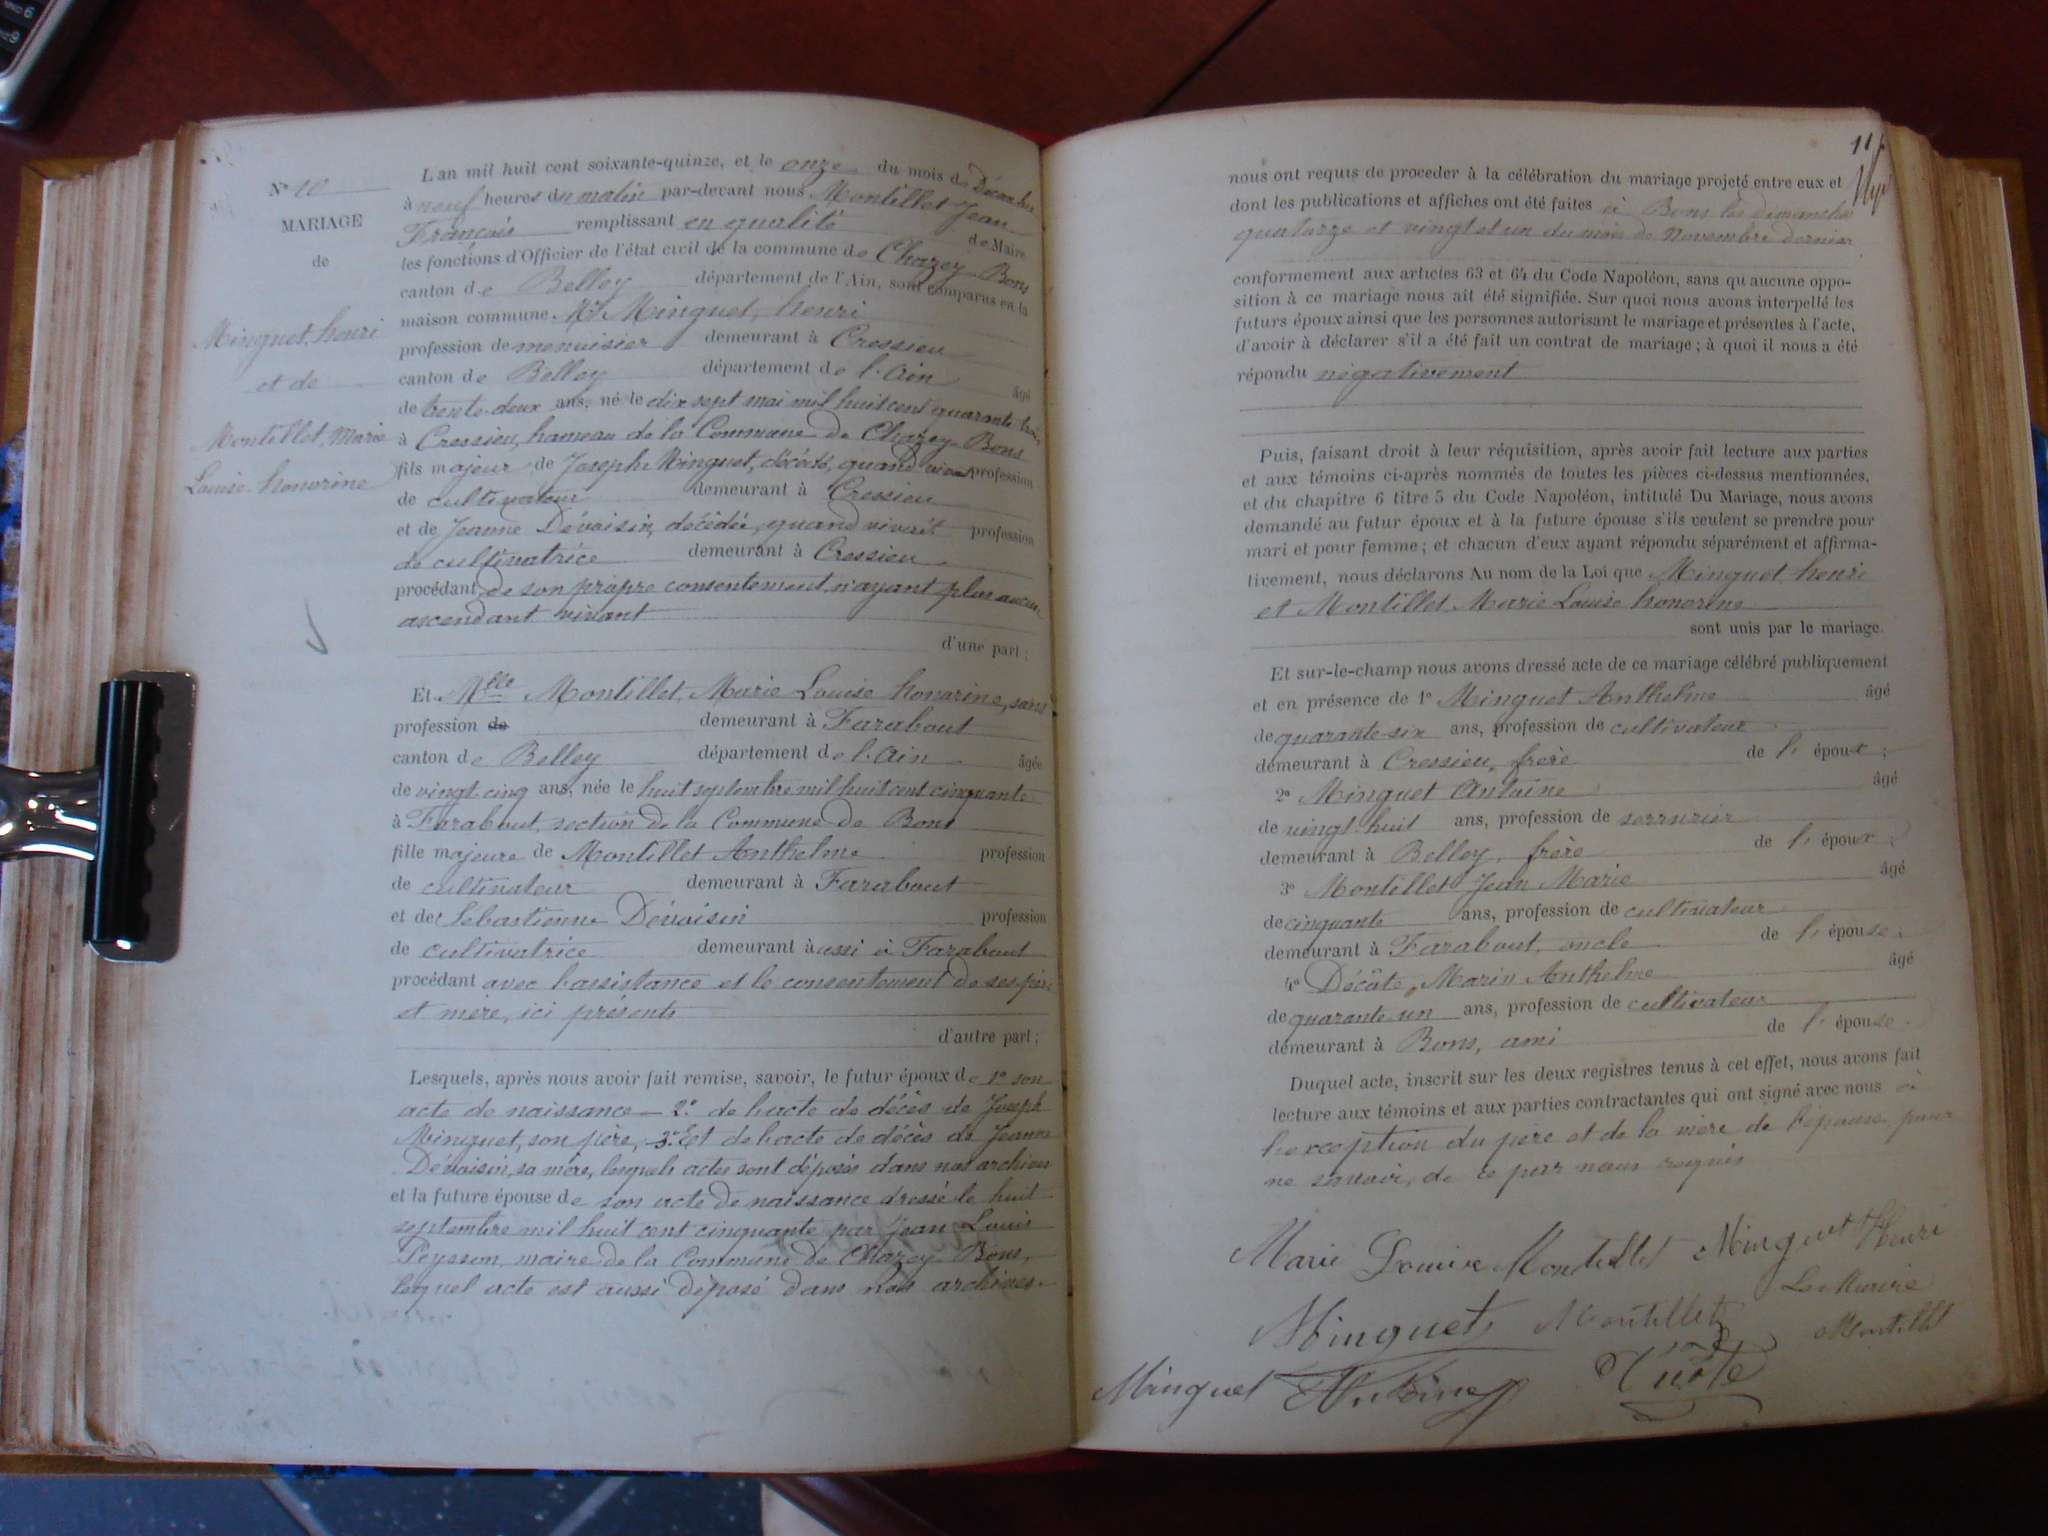 N° 10
MARIAGE
de
Minguet, henri
et de
Montillet, Marie
Louise honorine
L'an mil huit cent soixante-quinze, et le onze du mois de Décembre
à neuf heures du matin par-devant nous Montillet Jean
François remplissant en qualité de Maire
les fonctions d'Officier de l'état civil de la commune de Chazey-Bons
canton de Belley département de l'Ain, sont comparus en la
maison commune Mr Minguet, henri
profession de menuisier demeurant à Cressieu
canton de Belley département de l'Ain âgé
de trente-deux ans, né le dix sept mai mil huit cent quarante trois
à Cressieu, hameau de la Commune de Chazey-Bons
fils majeur de Joseph Minguet, décédé, quand vivait profession
de cultivateur demeurant à Cressieu
et de Jeanne Dévaisin, décédée, quand vivait profession
de cultivatrice demeurant à Cressieu
procédant de son propre consentement n'ayant plus aucun
ascendant vivant
d'une part;
Et Melle Montillet, Marie Louise honorine, sans
profession de demeurant à Farabout
canton de Belley département de l'Ain âgée
de vingt-cinq ans, née le huit septembre mil huit cent cinquante
à Farabout, section de la Commune de Bons
fille majeure de Montillet Anthelme profession
de cultivateur demeurant à Farabout
et de Sébastienne Dévaisin profession
de cultivatrice demeurant aussi à Farabout
procédant avec l'assistance et le consentement de ses père
et mère, ici présents
d'autre part;
Lesquels, après nous avoir fait remise, savoir, le futur époux de 1° son
acte de naissance — 2° de l'acte de décès de Joseph
Minguet, son père, 3° Et de l'acte de décès de Jeanne
Dévaisin, sa mère, lesquels actes sont déposés dans nos archives
et la future épouse de son acte de naissance dressé le huit
septembre mil huit cent cinquante par Jean Louis
Peysson, maire de la Commune de Chazey-Bons,
lequel acte est aussi déposé dans nos archives.
11
nous ont requis de proceder à la célébration du mariage projeté entre eux et
dont les publications et affiches ont été faites à Bons les dimanches
quatorze et vingt et un du mois de Novembre dernier
conformement aux articles 63 et 64 du Code Napoléon, sans qu'aucune oppo-
sition à ce mariage nous ait été signifiée. Sur quoi nous avons interpellé les
futurs époux ainsi que les personnes autorisant le mariage et présentes à l'acte,
d'avoir à déclarer s'il a été fait un contrat de mariage; à quoi il nous a été
répondu négativement
Puis, faisant droit à leur réquisition, après avoir fait lecture aux parties
et aux témoins ci-après nommés de toutes les pièces ci-dessus mentionnées,
et du chapitre 6 titre 5 du Code Napoléon, intitulé Du Mariage, nous avons
demandé au futur époux et à la future épouse s'ils veulent se prendre pour
mari et pour femme; et chacun d'eux ayant répondu séparément et affirma-
tivement, nous déclarons Au nom de la Loi que Minguet henri
et Montillet Marie Louise honorine
sont unis par le mariage.
Et sur-le-champ nous avons dressé acte de ce mariage célébré publiquement
et en présence de 1° Minguet Anthelme âgé
de quarante-six ans, profession de cultivateur
demeurant à Cressieu, frère de l'époux;
2° Minguet Antoine âgé
de vingt-huit ans, profession de serrurier
demeurant à Belley, frère de l'époux;
3° Montillet Jean Marie âgé
de cinquante ans, profession de cultivateur
demeurant à Farabout, oncle de l'épouse;
4° Décôte, Marin Anthelme âgé
de quarante-un ans, profession de cultivateur
demeurant à Bons, ami de l'épouse.
Duquel acte, inscrit sur les deux registres tenus à cet effet, nous avons fait
lecture aux témoins et aux parties contractantes qui ont signé avec nous à
l'exception du père et de la mère de l'épouse pour
ne savoir, de ce par nous requis
Marie Louise Montillet Minguet Henri
Le Maire
Minguet Montillet Montillet
Minguet Antoine